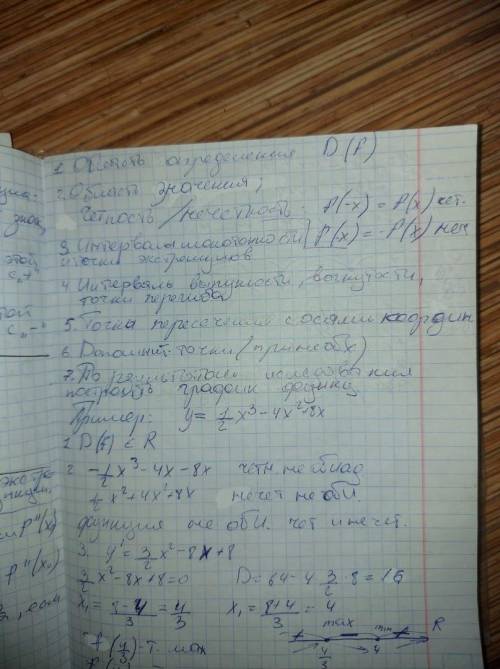 1. Область определения D(f)
2. Область значения;
Четность / нечетность. f(-x) = f(x) чет.
f(x) = -f(x) неч
3. Интервалы монотонности
и точки экстремумов
4. Интервалы выпуклости, вогнутости,
точки перегиба
5. Точки пересечения с осями координ
6. Дополнит. точки (при необх)
7. По результатам исследования
построить график функц
Пример: y = 1/2 x³ - 4x² + 8x
1. D(f) ∈ R
2. -1/2 x³ - 4x - 8x четн. не облад
1/2 x² + 4x² + 8x нечет не об.
функция не обл. чет и нечет.
3. y' = 3/2 x² - 8x + 8
3/2 x² - 8x + 8 = 0 D = 64 - 4 · 3/2 · 8 = 16
x₁ = 8-4/3 = 4/3 x₁ = 8+4/3 = 4
max min R
4/3 4
f(4/3) - т. max